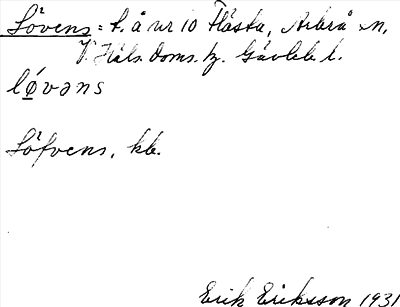 Lövens = t. å nr 10 Flästa, Arbrå sn,
V. Häls. doms. tg. Gävleb. l.
løvəns
Löfvens, kb.
Erik Eriksson 1931